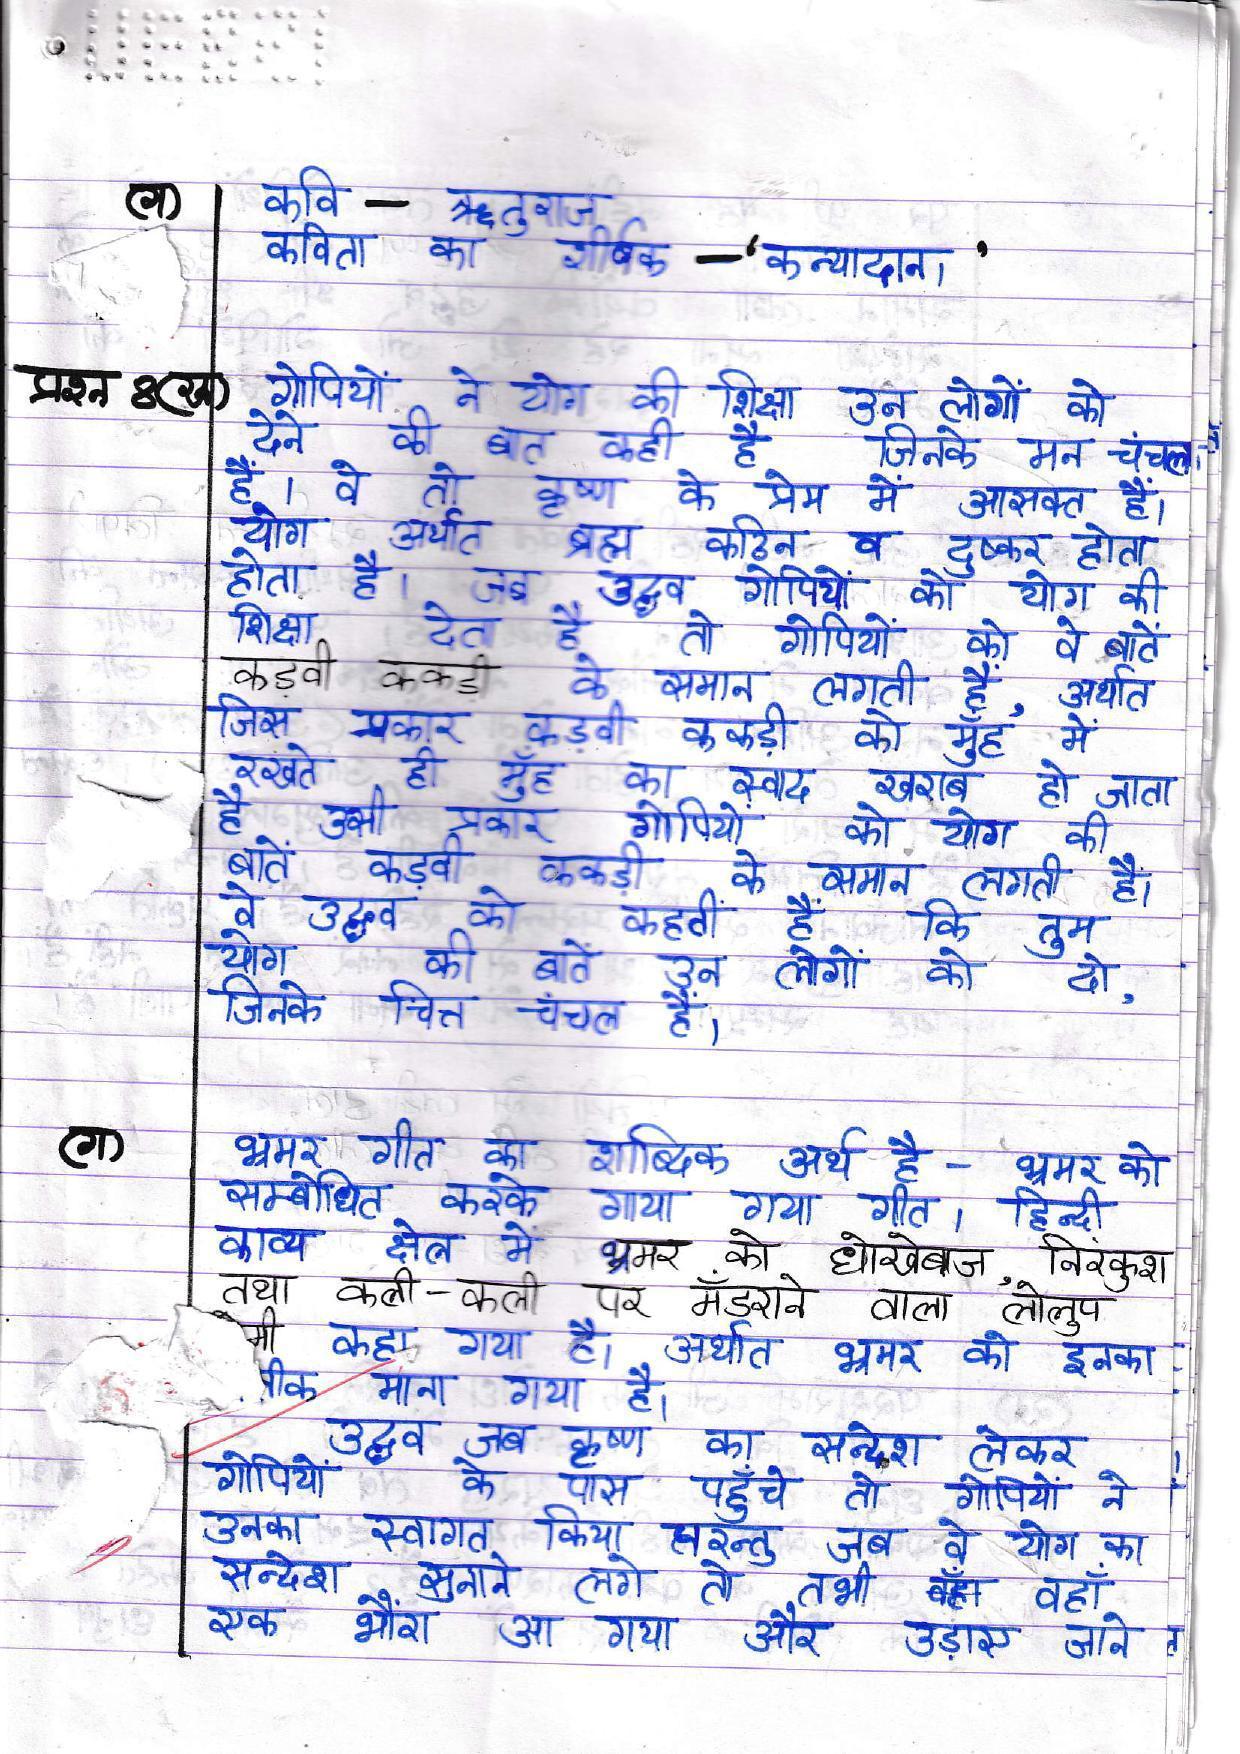 (ग) कवि — ऋतुराज
कविता का शीर्षक — 'कन्यादान।'
प्रश्न 8(ख) गोपियों ने योग की शिक्षा उन लोगों को
देने की बात कही है जिनके मन चंचल
हैं। वे तो कृष्ण के प्रेम में आसक्त हैं।
योग अर्थात ब्रह्म कठिन व दुष्कर होता
होता है। जब उद्धव गोपियों को योग की
शिक्षा देता है तो गोपियों को वे बातें
कड़वी ककड़ी के समान लगती हैं, अर्थात
जिस प्रकार कड़वी ककड़ी को मुँह में
रखते ही मुँह का स्वाद खराब हो जाता
है उसी प्रकार गोपियो को योग की
बातें कड़वी ककड़ी के समान लगती हैं।
वे उद्धव को कहती हैं कि तुम
योग की बातें उन लोगों को दो,
जिनके चित्त चंचल हैं।
(ग) भ्रमर गीत का शाब्दिक अर्थ है - भ्रमर को
सम्बोधित करके गाया गया गीत। हिन्दी
काव्य क्षेत्र में भ्रमर को धोखेबाज, निरंकुश
तथा कली-कली पर मँडराने वाला लोलुप
मी कहा गया है। अर्थात भ्रमर को इनका
ीक माना गया है।
उद्धव जब कृष्ण का सन्देश लेकर
गोपियों के पास पहुँचे तो गोपियों ने
उनका स्वागत किया परन्तु जब वे योग का
सन्देश सुनाने लगे तो तभी वहाँ
एक भौंरा आ गया और उड़ाए जाने